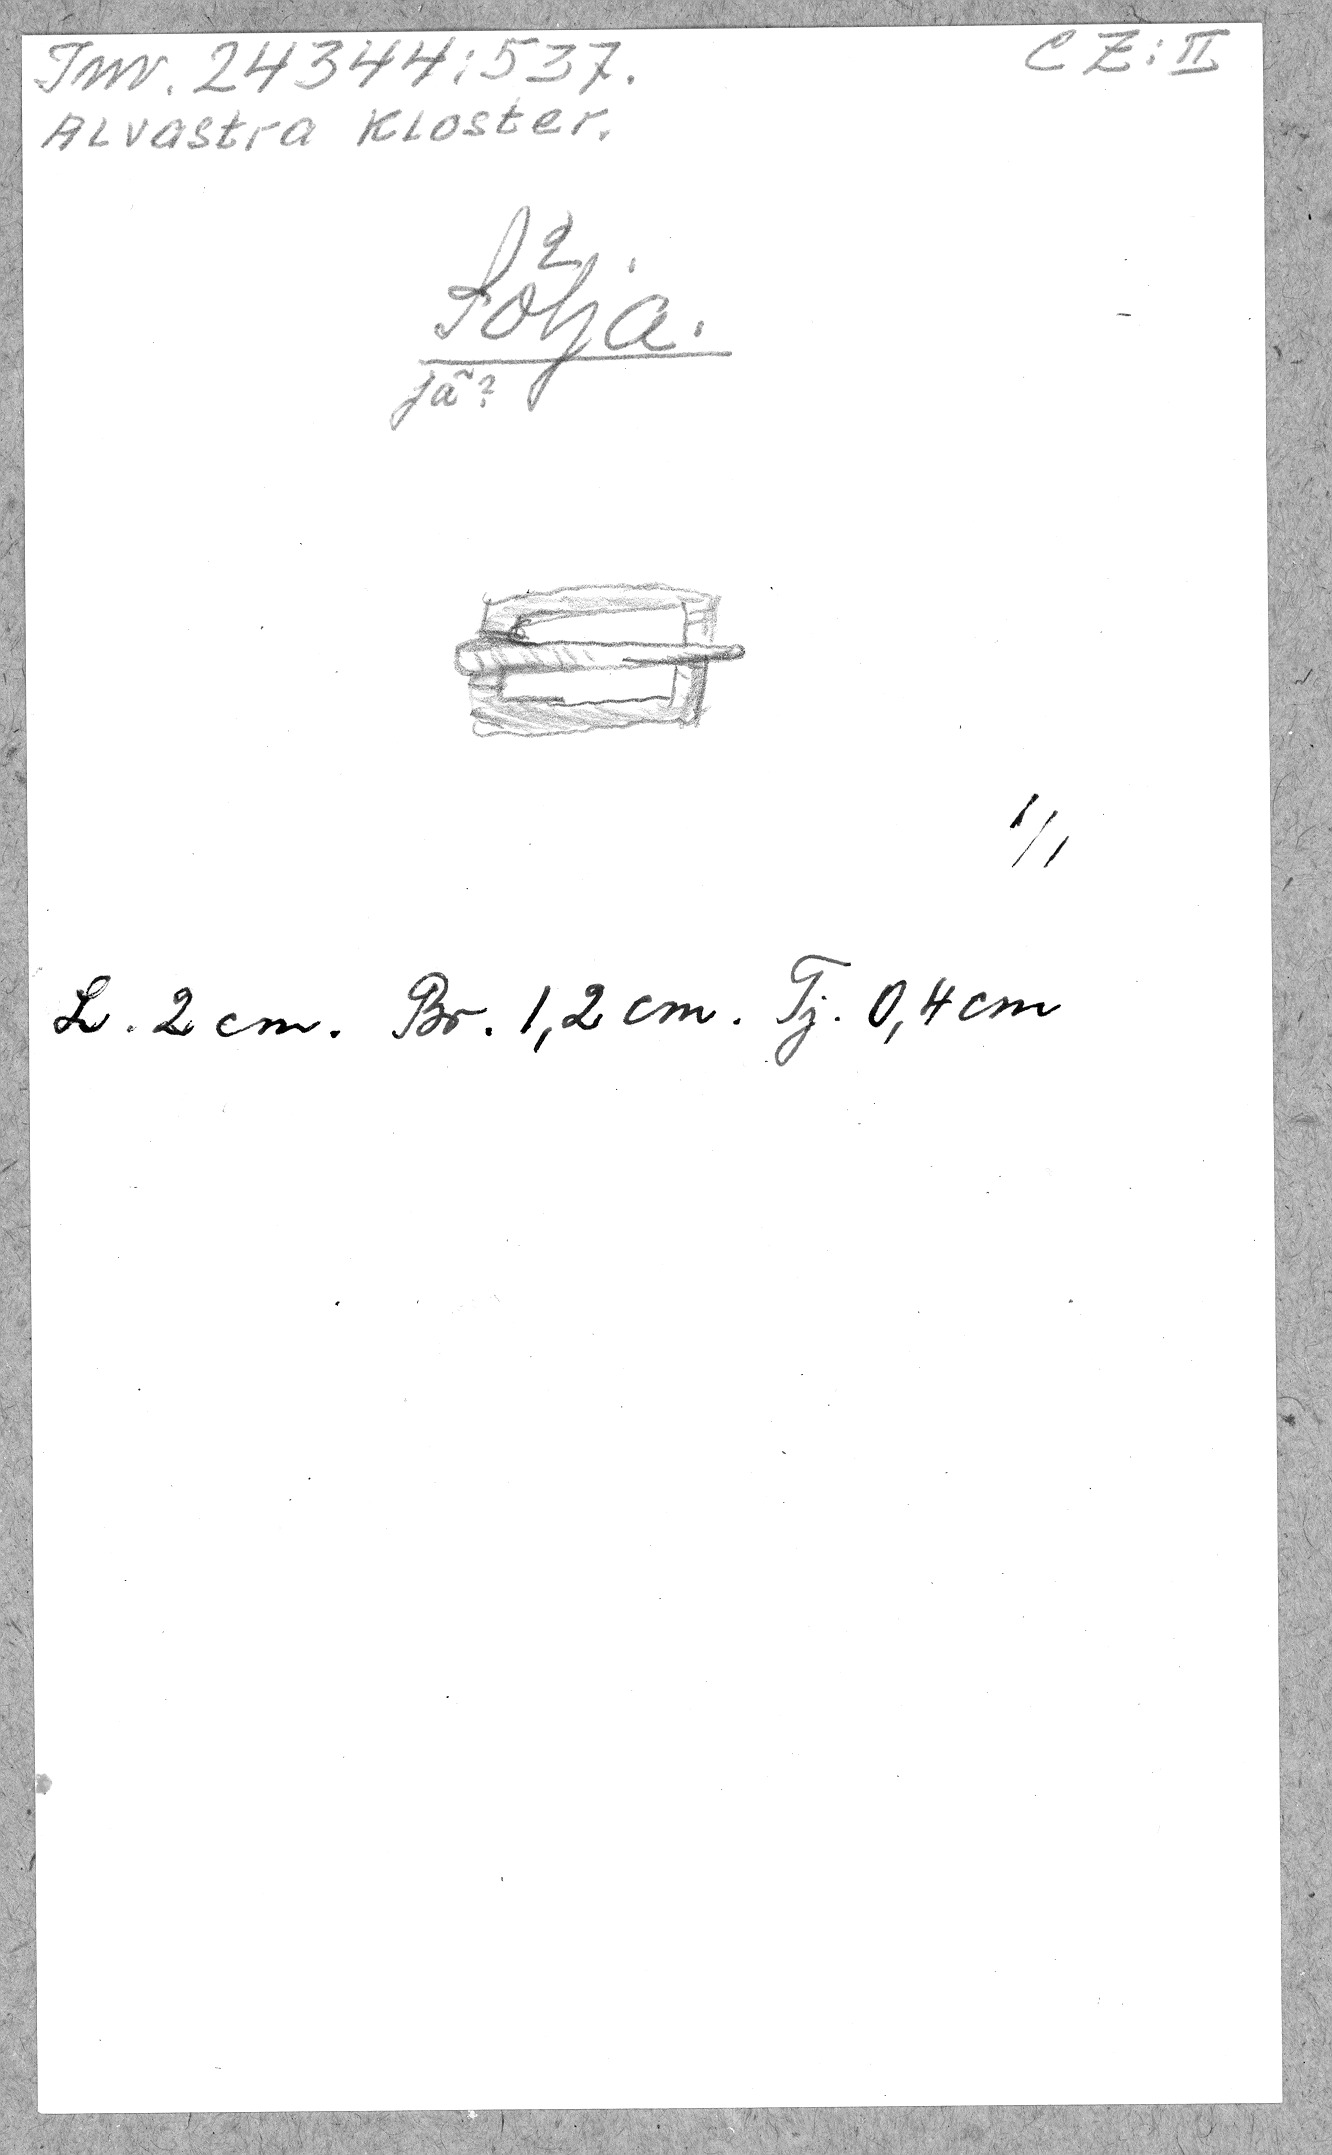 Inv. 24344:537.
CZ:II
Alvastra Kloster.
2
Sölja.
jä?
1/1
L. 2 cm. Br. 1,2 cm. Tj. 0,4 cm